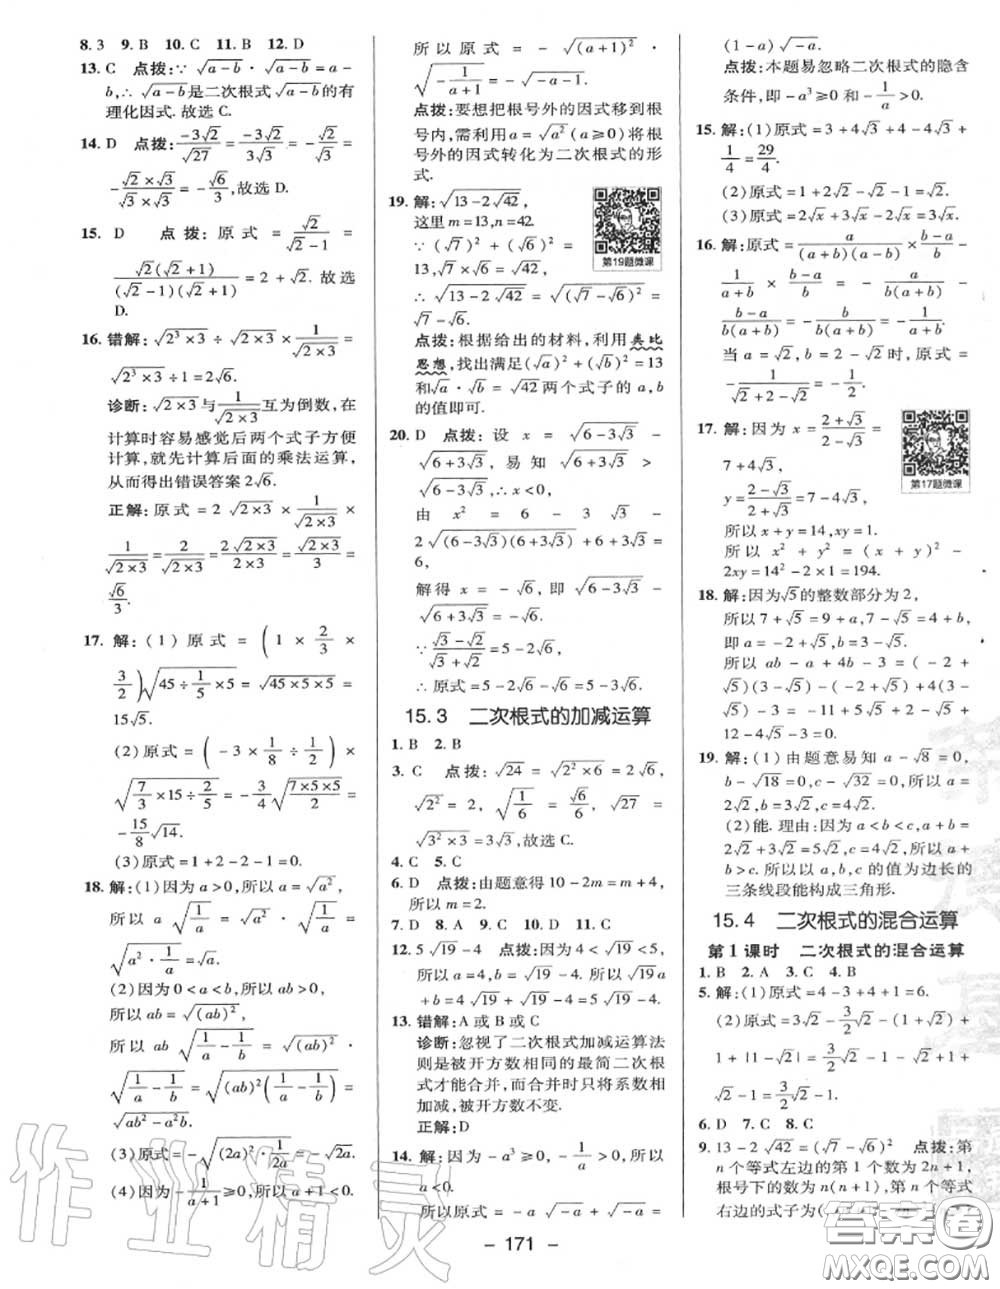 8. 3　9. B　10. C　11. B　12. D
13. C　点拨:∵√(a-b)·√(a-b)=a-
b,∴√(a-b)是二次根式√(a-b)的有
理化因式. 故选 C.
14. D　点拨: (-3√2)/√27 = (-3√2)/(3√3) =
-(√2×√3)/(√3×√3) = -√6/3,故选 D.
15. D　点拨:原式 = √2/(√2-1) =
√2(√2+1)/((√2-1)(√2+1)) = 2+√2. 故选
D.
16. 错解:√(2³×3)÷√(2×3)×1/√(2×3)=
√(2³×3)÷1=2√6.
诊断:√(2×3)与1/√(2×3)互为倒数,在
计算时容易感觉后两个式子方便
计算,就先计算后面的乘法运算,
从而得出错误答案 2√6.
正解:原式=2√(2×3)×1/√(2×3)×
1/√(2×3)=2/√(2×3)=2√(2×3)/(2×3)=
√6/3.
17. 解:(1)原式=(1×2/3×
3/2)√(45÷1/5×5)=√(45×5×5)=
15√5.
(2)原式=(-3×1/8÷1/2)×
√(7/3×15÷2/5)=-3/4√((7×5×5)/2)=
-15/8√14.
(3)原式=1+2-2-1=0.
18. 解:(1)因为a>0,所以a=√a²,
所以a√(1/a)=√a²·√(1/a)=
√(a²·1/a)=√a.
(2)因为0<a<b,所以ab>0,
所以ab=√(ab)².
所以ab√(1/a-1/b)=√(ab)²·
√(1/a-1/b)=√((ab)²(1/a-1/b))=
√(ab²-a²b).
(3)原式=-√((2a)²·1/(2a))=-√2a.
(4)因为-1/(a+1)≥0,所以a+1<0.
所以原式=-√(a+1)²·
√(-1/(a+1))=-√(-a-1).
点拨:要想把根号外的因式移到根
号内,需利用a=√a²(a≥0)将根
号外的因式转化为二次根式的形
式.
19. 解:√(13-2√42),
这里m=13,n=42.
∵(√7)²+(√6)²=
13,√7×√6=√42,
第19题微课
∴√(13-2√42)=√(√7-√6)²=
√7-√6.
点拨:根据给出的材料,利用类比
思想,找出满足(√a)²+(√b)²=13
和√a·√b=√42两个式子的a,b
的值即可.
20. D　点拨:设x=√(6-3√3)-
√(6+3√3),易知√(6+3√3)>
√(6-3√3),∴x<0,
由x²=6-3√3-
2√((6-3√3)(6+3√3))+6+3√3=
6,
解得x=-√6,即√(6-3√3)-
√(6+3√3)=-√6.
∵(√3-√2)/(√3+√2)=5-2√6,
∴原式=5-2√6-√6=5-3√6.
15.3　二次根式的加减运算
1. B　2. B
3. C　点拨:√24=√(2²×6)=2√6,
√2²=2,√(1/6)=√6/6,√27=
√(3²×3)=3√3,故选C.
4. C　5. C
6. D　点拨:由题意得10-2m=m+4,
所以m=2.
7. D　8. A　9. C　10. D　11. C
12. 5√19-4　点拨:因为4<√19<5,
所以a=4,b=√19-4. 所以a
+b=4√19+√19-4=5√19-4.
13. 错解:A 或 B 或 C
诊断:忽视了二次根式加减运算法
则是被开方数相同的最简二次根
式才能合并,而合并时只将系数相
加减,被开方数不变.
正解:D
14. 解:因为-a³≥0,-1/a>0,所以a<0.
所以原式=-a√-a+√-a=
(1-a)√-a.
点拨:本题易忽略二次根式的隐含
条件,即-a³≥0和-1/a>0.
15. 解:(1)原式=3+4√3+4-4√3+
1/4=29/4.
(2)原式=1+2√2-√2=1+√2.
(3)原式=2√x+3√x-2√x=3√x.
16. 解:原式=a/((a+b)(a-b))×(b-a)/b-
1/(a+b)×(b-a)/b=-a/(b(a+b))-
(b-a)/(b(a+b))=-b/(b(a+b))=-1/(a+b).
当a=√2,b=2-√2时,原式=
-1/(√2+2-√2)=-1/2.
17. 解:因为x=(2+√3)/(2-√3)=
7+4√3,
第17题微课
y=(2-√3)/(2+√3)=7-4√3,
所以x+y=14,xy=1.
所以x²+y²=(x+y)²-
2xy=14²-2×1=194.
18. 解:因为√5的整数部分为2,
所以7+√5=9+a,7-√5=4+b,
即a=-2+√5,b=3-√5.
所以ab-a+4b-3=(-2+
√5)(3-√5)-(-2+√5)+4(3-
√5)-3=-11+5√5+2-√5+
12-4√5-3=0.
19. 解:(1)由题意易知a-√8=0,
b-√18=0,c-√32=0,所以a=
2√2,b=3√2,c=4√2.
(2)能. 理由:因为a<b<c,a+b=
2√2+3√2=5√2>4√2,所以a+
b>c. 所以以a,b,c的值为边长的
三条线段能构成三角形.
15.4　二次根式的混合运算
第1课时　二次根式的混合运算
1. B　2. A　3. C　4. B
5. 解:(1)原式=4-3+4+1=6.
(2)原式=3√2-3/2√2-(1+√2)+
1+|1-√2|=3/2√2-√2+
√2-1=3/2√2-1.
6. D　7. C　8. C
9. 13-2√42=(√7-√6)²　点拨:第
n个等式左边的第1个数为2n+1,
根号下的数为n(n+1),第n个等式
右边的式子为(
- 171 -
作业精灵
答案圈
MXQE.COM